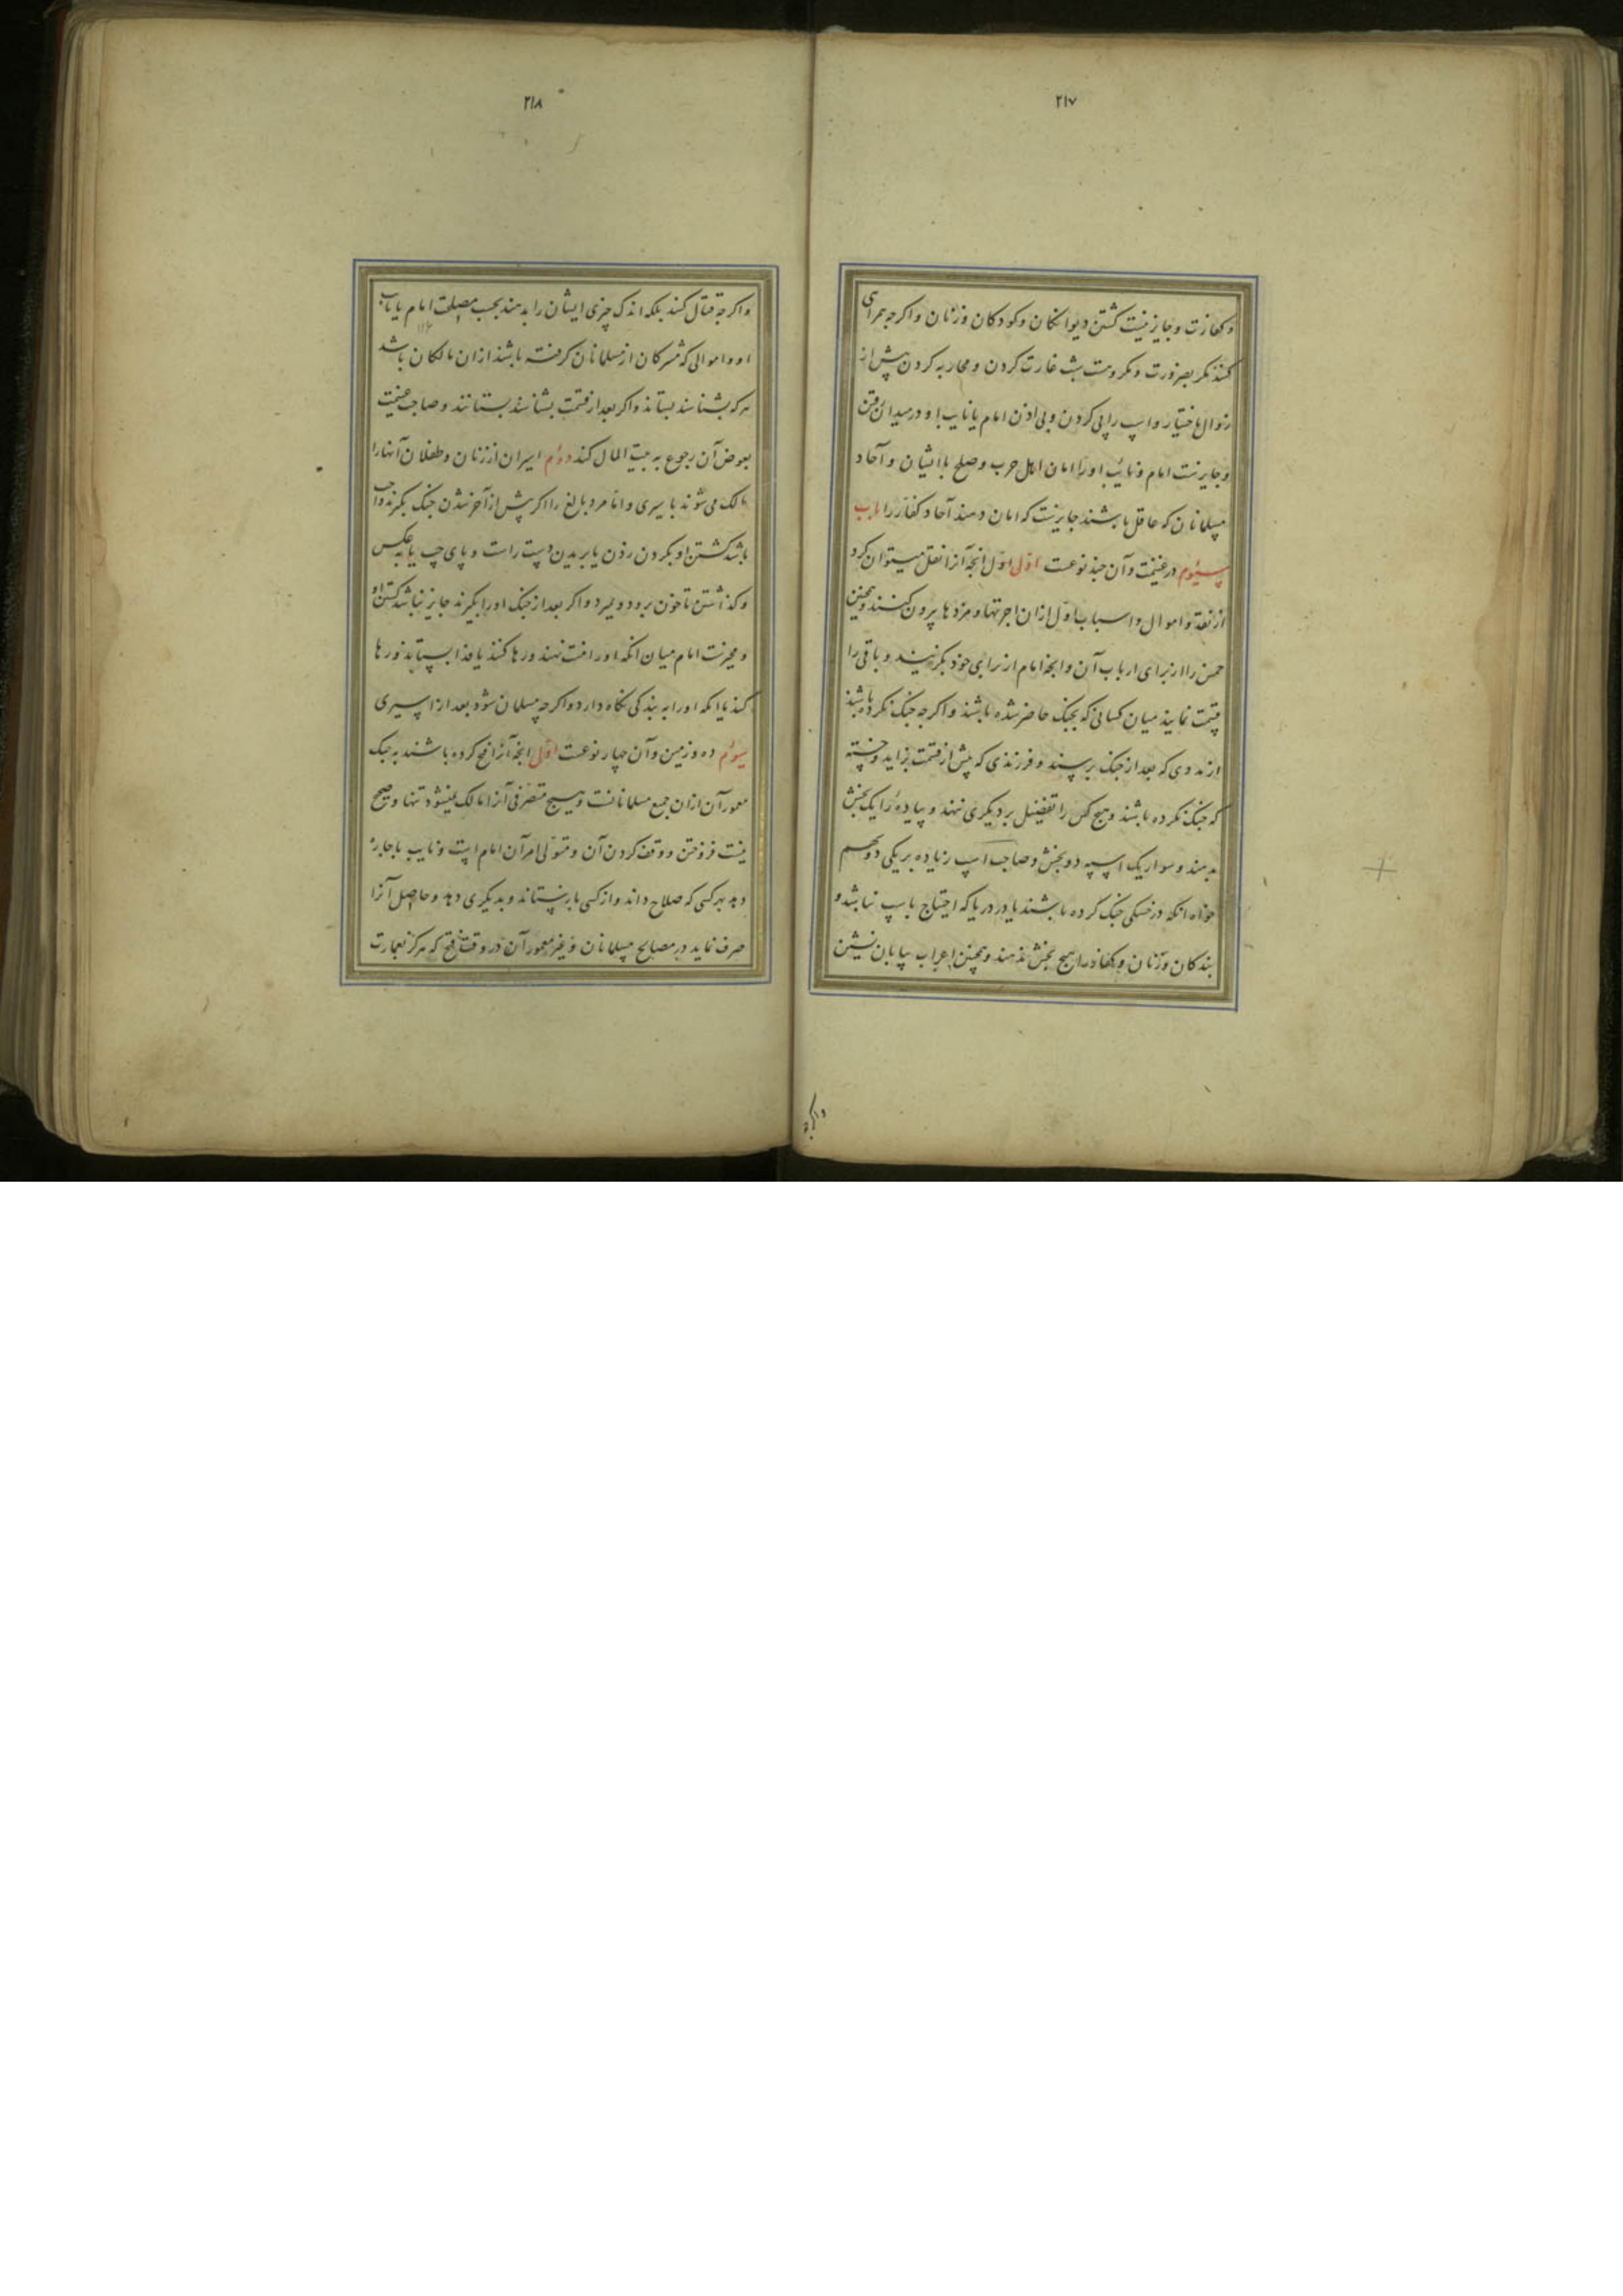 ۲۱۷
و کفارت و جایز نیست کشتن دیوانکان و کودکان و زنان و اکرچه همراهی
کنند مکر بضرورت و مکروهست بشب غارت کردن و محاربه کردن پیش از
زوال باختیار و اسپ را پی کردن و بی اذن امام یا نایب او در میدان رفتن
و جایزست امام و نایب او را امان اهل حرب و صلح با ایشان و آحاد
مسلمانان که عاقل باشند جایزست که امان دهند آحاد کفار را باب
سیوم در غنیمت و آن چند نوعست اول اول انچه آنرا نقل میتوان کرد
از نقد و اموال و اسباب اول ازان اجرتها و مزدها بیرون کنند و همچنین
خمس را از برای ارباب آن و انچه امام از برای خود بکزیند و باقی را
قسمت نمایند میان کسانی که بجنک حاضر شده باشند و اکرچه جنک نکرده باشند
از مددی که بعد از جنک برسند و فرزندی که پیش از قسمت بزاید و خسته
که جنک نکرده باشند و هیچ کس را تفضیل بر دیکری ننهند و پیاده را یک بخش
بدهند و سوار یک اسپه دو بخش و صاحب اسپ زیاده بر یکی دو سهم
خواه انکه در خشکی جنک کرده باشند یا در دریا که احتیاج باسپ نباشد و
بندکان و زنان و کفار را هیچ بخش ندهند و همچنین اعراب بیابان نشین
و اکرچه
۲۱۸
و اکرچه قتال کنند بلکه اندک چیزی ایشان را بدهند بحسب مصلحت امام یا نایب
او و اموالی که مشرکان از مسلمانان کرفته باشند ازان مالکان باشد
هرکه بشناسند بستاند و اکر بعد از قسمت بشناسند بستانند و صاحب غنیمت
بعوض آن رجوع به بیت المال کند دوم اسیران از زنان و طفلان آنها را
مالک می شوند باسیری و اما مرد بالغ را اکر پیش از آخر شدن جنک بکیرند واجب
باشد کشتن او بکردن زدن یا بریدن دست راست و پای چپ یا به عکس
و کذاشتن تا خون برود و بمیرد و اکر بعد از جنک او را بکیرند جایز نباشد کشتن او
و مخیرست امام میان انکه او را منت نهند و رها کنند یا فدا بستاند و رها
کند یا انکه او را به بندکی نکاه دارد و اکرچه مسلمان شود بعد از اسیری
سیوم ده و زمین و آن چهار نوعست اول انچه آنرا فتح کرده باشند به جنک
معمور آن ازان جمیع مسلمانانست و هیچ متصرفی آنرا مالک نمیشود تنها و صحیح
نیست فروختن و وقف کردن آن و متولی امر آن امام است و نایب باجاره
دهد بهر کسی که صلاح داند و از کسی باز ستاند و بدیکری دهد و حاصل آنرا
صرف نماید در مصالح مسلمانان و غیر معمور آن در وقت فتح که هرکز بعمارت